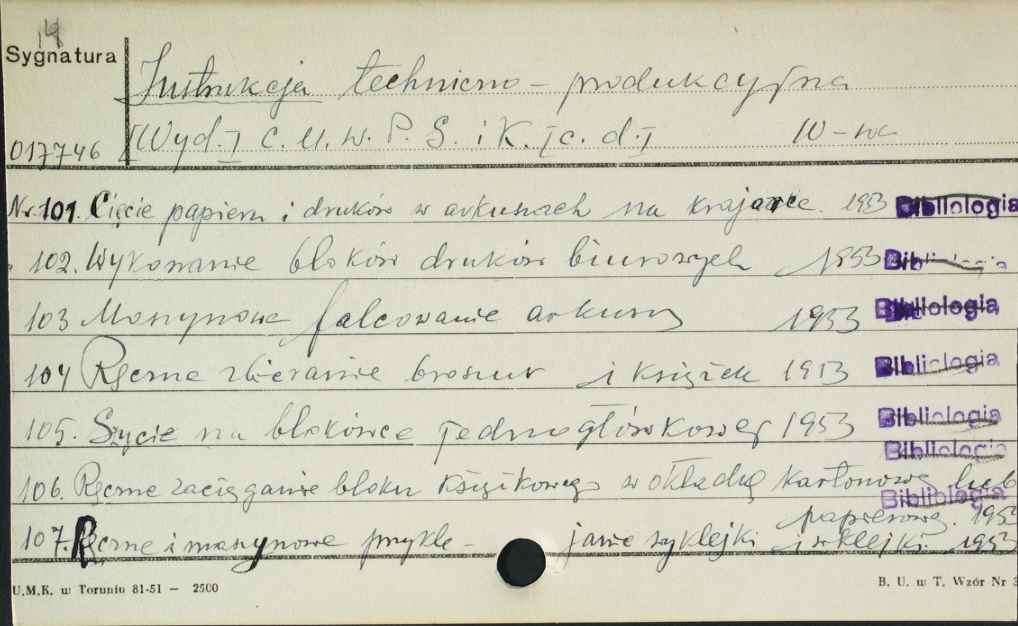 14
Sygnatura
Instrukcja techniczno - produkcyjna
[Wyd.] C. U. W. P. G. i K. [c. d.] W-wa
017746
Nr. 101. Cięcie papieru i druków w arkuszach na krajarce. 1953 Bibliologia
102. Wykonanie bloków druków biurowych 1953 Bibliologia
103 Maszynowe falcowanie arkuszy 1953 Bibliologia
104 Ręczne zbieranie broszur i książek 1953 Bibliologia
105. Szycie na blokówce jednogłówkowej 1953 Bibliologia
Bibliologia
106. Ręczne zaciąganie bloku książkowego w okładkę kartonową lub
Bibliologia
papierową. 1953
107. Ręczne i maszynowe przykle- janie wyklejki i wklejki. 1953
U.M.K. w Toruniu 81-51 — 2500
B. U. w T. Wzór Nr 3